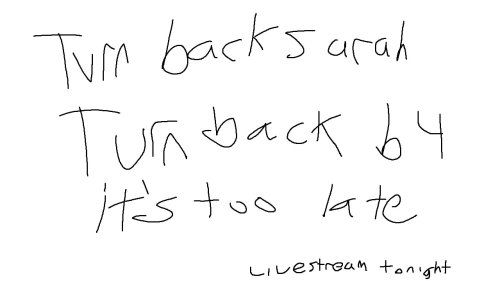 Turn back sarah
Turn back b4
it's too late
Livestream tonight